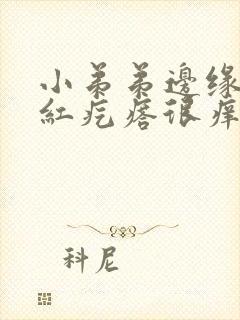 小弟弟邊缘
紅疙瘩很痒
科尼